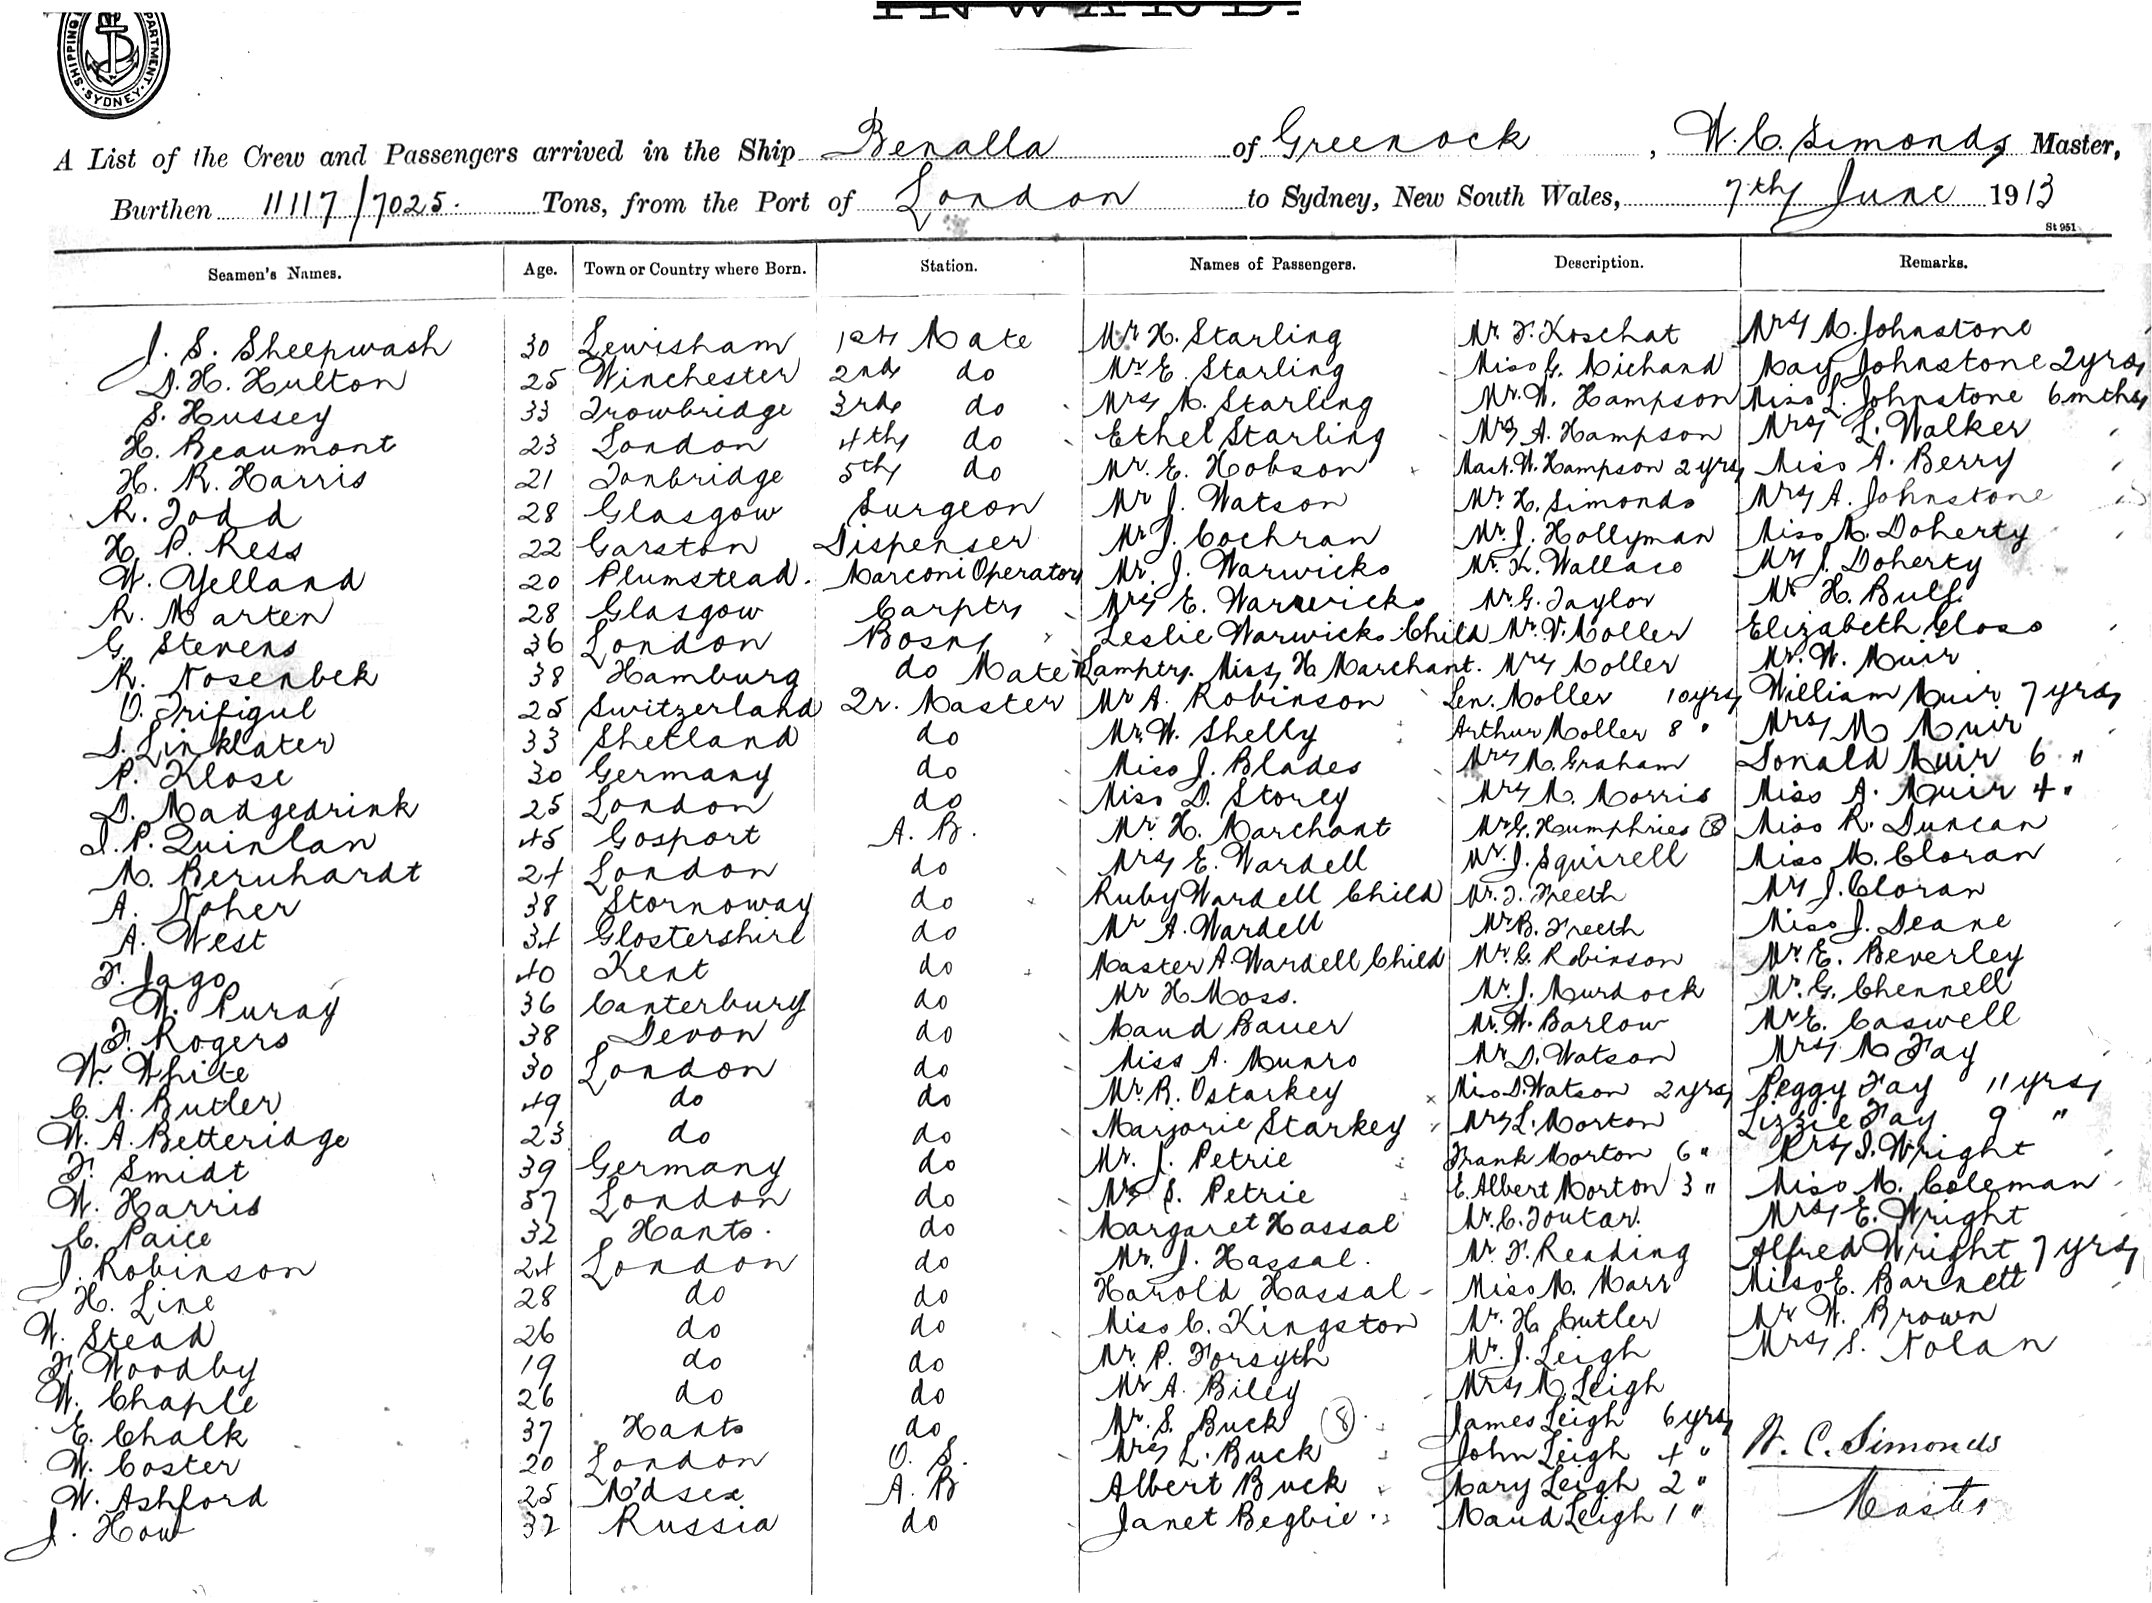 INWARD.
SHIPPING DEPARTMENT. SYDNEY.
A List of the Crew and Passengers arrived in the Ship Benalla of Greenock, W. C. Simonds Master,
Burthen 11117/7025. Tons, from the Port of London to Sydney, New South Wales, 7th June 1913
St 951
Seamen's Names. Age. Town or Country where Born. Station. Names of Passengers. Description. Remarks.
J. S. Sheepwash 30 Lewisham 1st Mate Mr H. Starling Mr. F. Koschat Mrs M. Johnstone
D. H. Hulton 25 Winchester 2nd do Mr E. Starling Miss G. Michand May Johnstone 2 yrs
S. Hussey 33 Trowbridge 3rd do Mrs M. Starling Mr. W. Hampson Miss L. Johnstone 6 mths
H. Beaumont 23 London 4th do Ethel Starling Mrs A. Hampson Mrs L. Walker
H. R. Harris 21 Tonbridge 5th do Mr. E. Hobson Mast. W. Hampson 2 yrs Miss A. Berry
R. Todd 28 Glasgow Surgeon Mr J. Watson Mr H. Simonds Mrs A. Johnstone
H. P. Ress 22 Garston Dispenser Mr J. Cochran Mr. J. Hollyman Miss M. Doherty
W. Yelland 20 Plumstead. Marconi Operator Mr. J. Warwicks Mr. K. Wallace Mr J. Doherty
R. Marten 28 Glasgow Carptr Mrs E. Warwicks Mr G. Taylor Mr H. Bull.
G. Stevens 36 London Bosn Leslie Warwicks Child Mr. V. Moller Elizabeth Gloss
R. Nosenbek 38 Hamburg do Mate Lamptr. Miss H Marchant. Mrs Moller Mr. W. Muir
O. Trifigul 25 Switzerland Qr. Master Mr A. Robinson Len. Moller 10 yrs William Muir 7 yrs
D. Linklater 33 Shetland do Mr. W. Shelly Arthur Moller 8 " Mrs M Muir
P. Klose 30 Germany do Miss J. Blades Mrs M. Graham Donald Muir 6 "
D. Madgedrink 25 London do Miss D. Storey Mrs M. Morris Miss A. Muir 4 "
J. P. Quinlan 45 Gosport A. B. Mr. H. Marchant Mr G. Humphries (8) Miss R. Duncan
M. Bernhardt 24 London do Mrs E. Wardell Mr. J. Squirell Miss M. Cloran
A. Noher 38 Stornoway do Ruby Wardell Child Mr. T. Freeth Mr J. Cloran
A. West 34 Glostershire do Mr A. Wardell Mr B. Freeth Miss J. Deane
F. Jago 40 Kent do Master A. Wardell Child Mr. G. Robinson Mr. E. Beverley
W. Puray 36 Canterbury do Mr H Moss. Mr. J. Murdock Mr. G. Chennell
F. Rogers 38 Devon do Maud Bauer Mr. W. Barlow Mr E. Caswell
W. White 30 London do Miss A. Munro Mr D. Watson Mrs M Fay
C. A. Butler 49 do do Mr. R. Ostarkey Miss D. Watson 2 yrs Peggy Fay 11 yrs
W. A. Betteridge 23 do do Marjorie Starkey Mrs L. Morton Lizzie Fay 9 "
F. Smidt 39 Germany do Mr. J. Petrie Frank Morton 6 " Mrs J. Wright
W. Harris 57 London do Mr S. Petrie E. Albert Morton 3 " Miss M. Coleman
C. Paice 32 Hants. do Margaret Hassal Mr. C. Toutar. Mrs E. Wright
J. Robinson 24 London do Mr. J. Hassal. Mr. F. Reading Alfred Wright 7 yrs
H. Line 28 do do Harold Hassal Miss M. Marr Miss E. Barnett
W. Stead 26 do do Miss C. Kingston Mr. H. Cutler Mr W. Brown
F. Woodby 19 do do Mr. P. Forsyth Mr. J. Leigh Mrs S. Nolan
W. Chaple 26 do do Mr A. Biley Mrs M. Leigh
E. Chalk 37 Hants do Mr. S. Buck (8) James Leigh 6 yrs
W. Coster 20 London O. S. Mrs L. Buck John Leigh 4 " W. C. Simonds
W. Ashford 25 M'dsex A. B Albert Buck Mary Leigh 2 " Master
J. How 32 Russia do Janet Begbie Maud Leigh 1 "